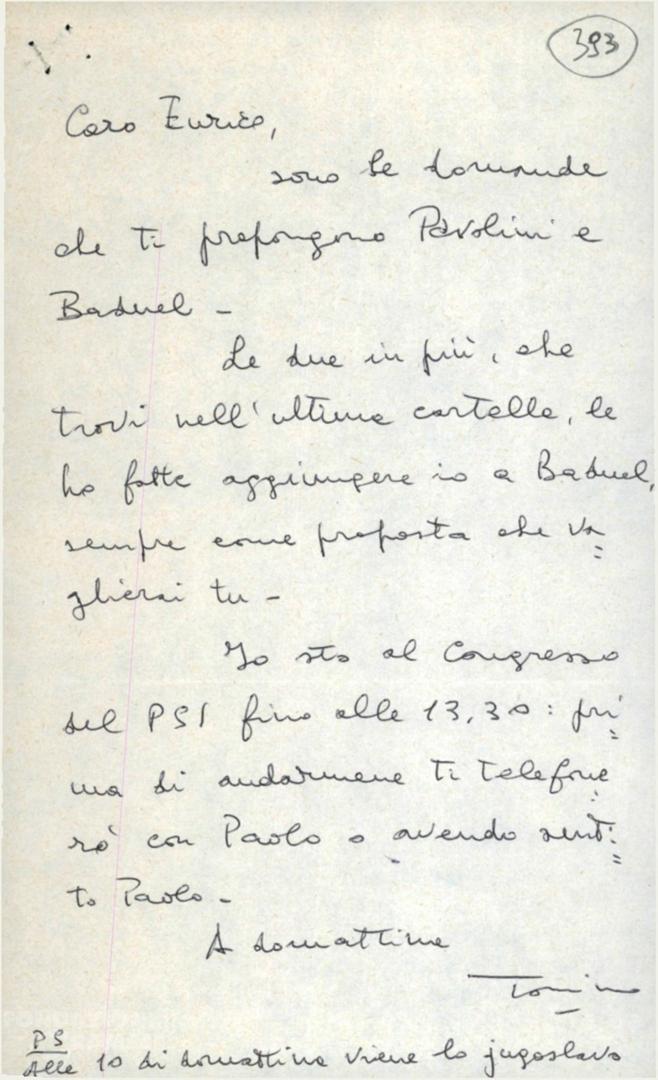 393
Caro Enrico,
sono le domande
che ti propongono Pavolini e
Baduel -
Le due in più, che
trovi nell'ultima cartella, le
ho fatte aggiungere io a Baduel,
sempre come proposta che va=
glierai tu -
Io sto al Congresso
del PSI fino alle 13,30: pri=
ma di andarmene ti telefone=
rò con Paolo o avendo senti=
to Paolo -
A domattina
Tonino
PS
Alle 10 di domattina viene lo jugoslavo